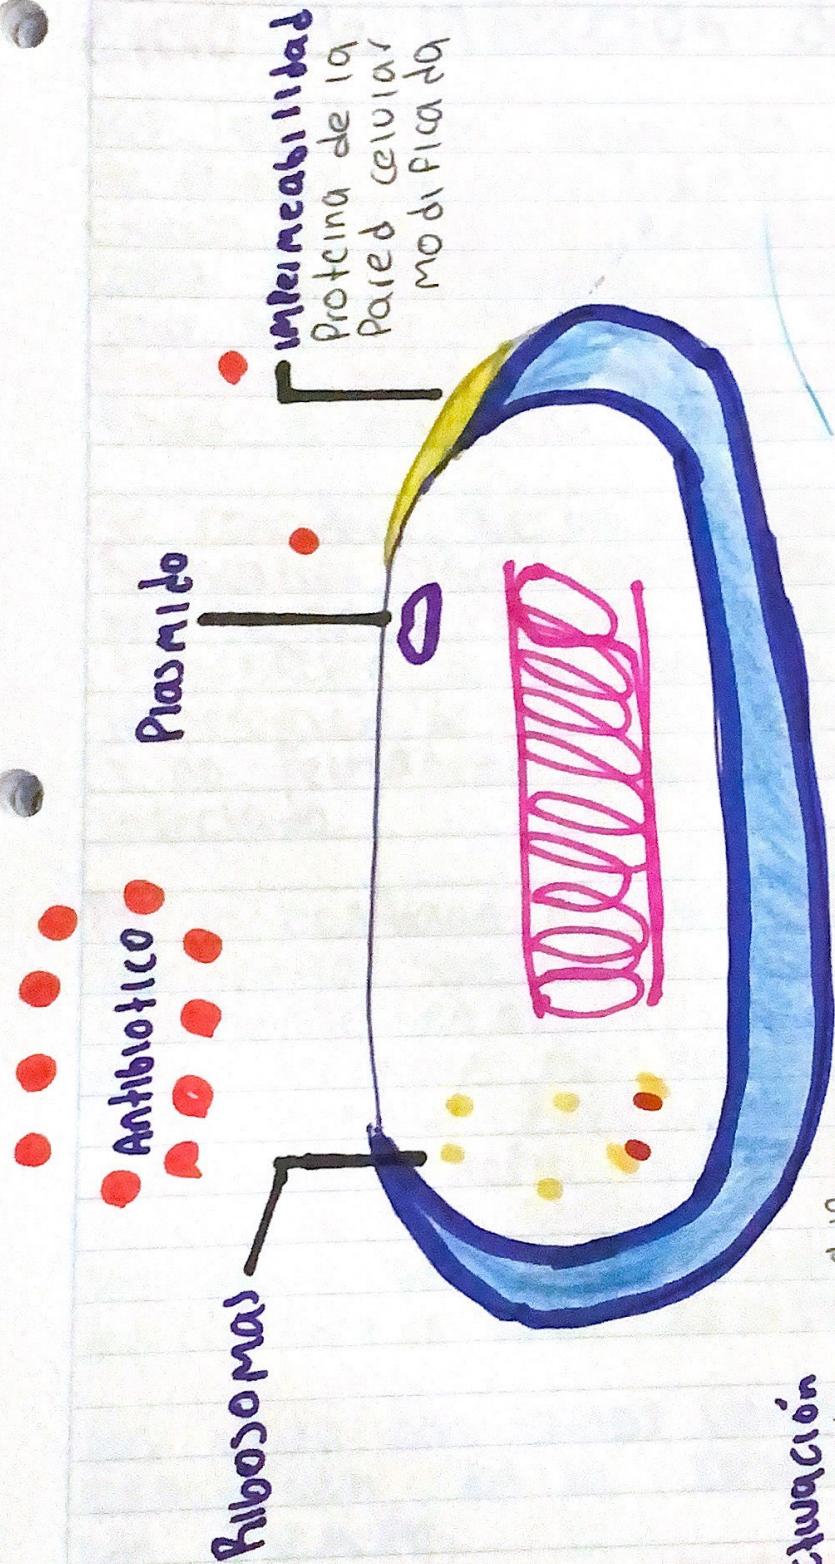 Ribosomas
Antibiotico
Plasmido
impermeabilidad
Proteina de la
Pared celular
modificada